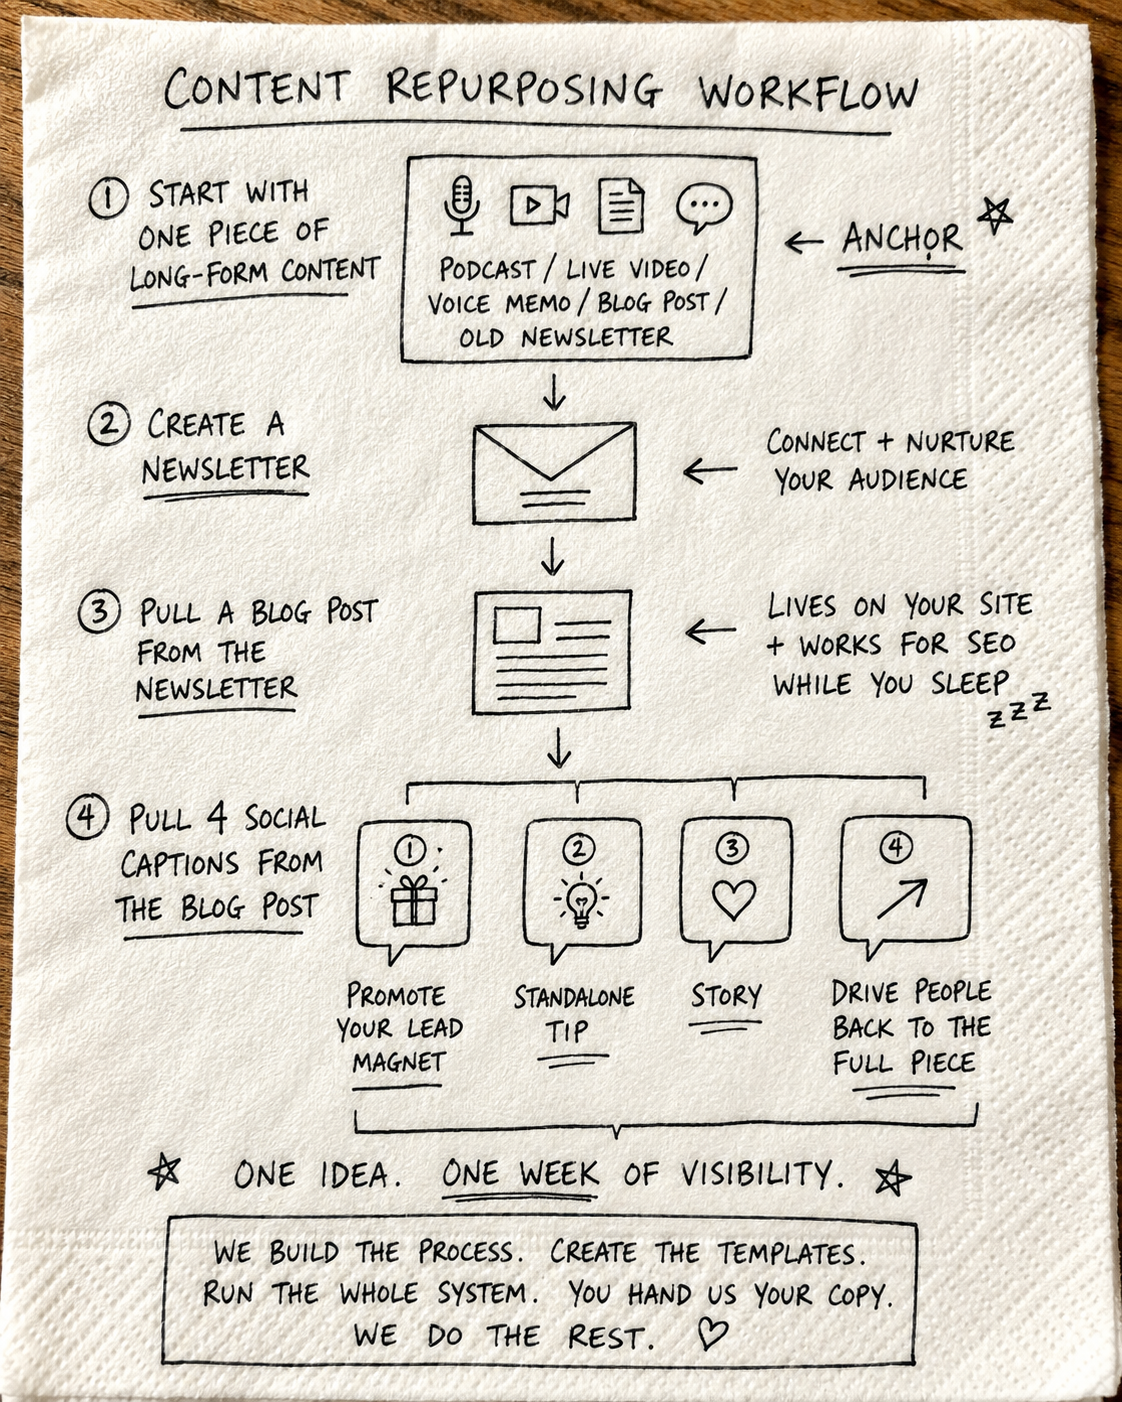 CONTENT REPURPOSING WORKFLOW
① START WITH
ONE PIECE OF
LONG-FORM CONTENT
PODCAST / LIVE VIDEO /
VOICE MEMO / BLOG POST /
OLD NEWSLETTER
← ANCHOR
② CREATE A
NEWSLETTER
← CONNECT + NURTURE
YOUR AUDIENCE
③ PULL A BLOG POST
FROM THE
NEWSLETTER
← LIVES ON YOUR SITE
+ WORKS FOR SEO
WHILE YOU SLEEP
z z z
④ PULL 4 SOCIAL
CAPTIONS FROM
THE BLOG POST
①
PROMOTE
YOUR LEAD
MAGNET
②
STANDALONE
TIP
③
STORY
④
DRIVE PEOPLE
BACK TO THE
FULL PIECE
ONE IDEA. ONE WEEK OF VISIBILITY.
WE BUILD THE PROCESS. CREATE THE TEMPLATES.
RUN THE WHOLE SYSTEM. YOU HAND US YOUR COPY.
WE DO THE REST. ♡